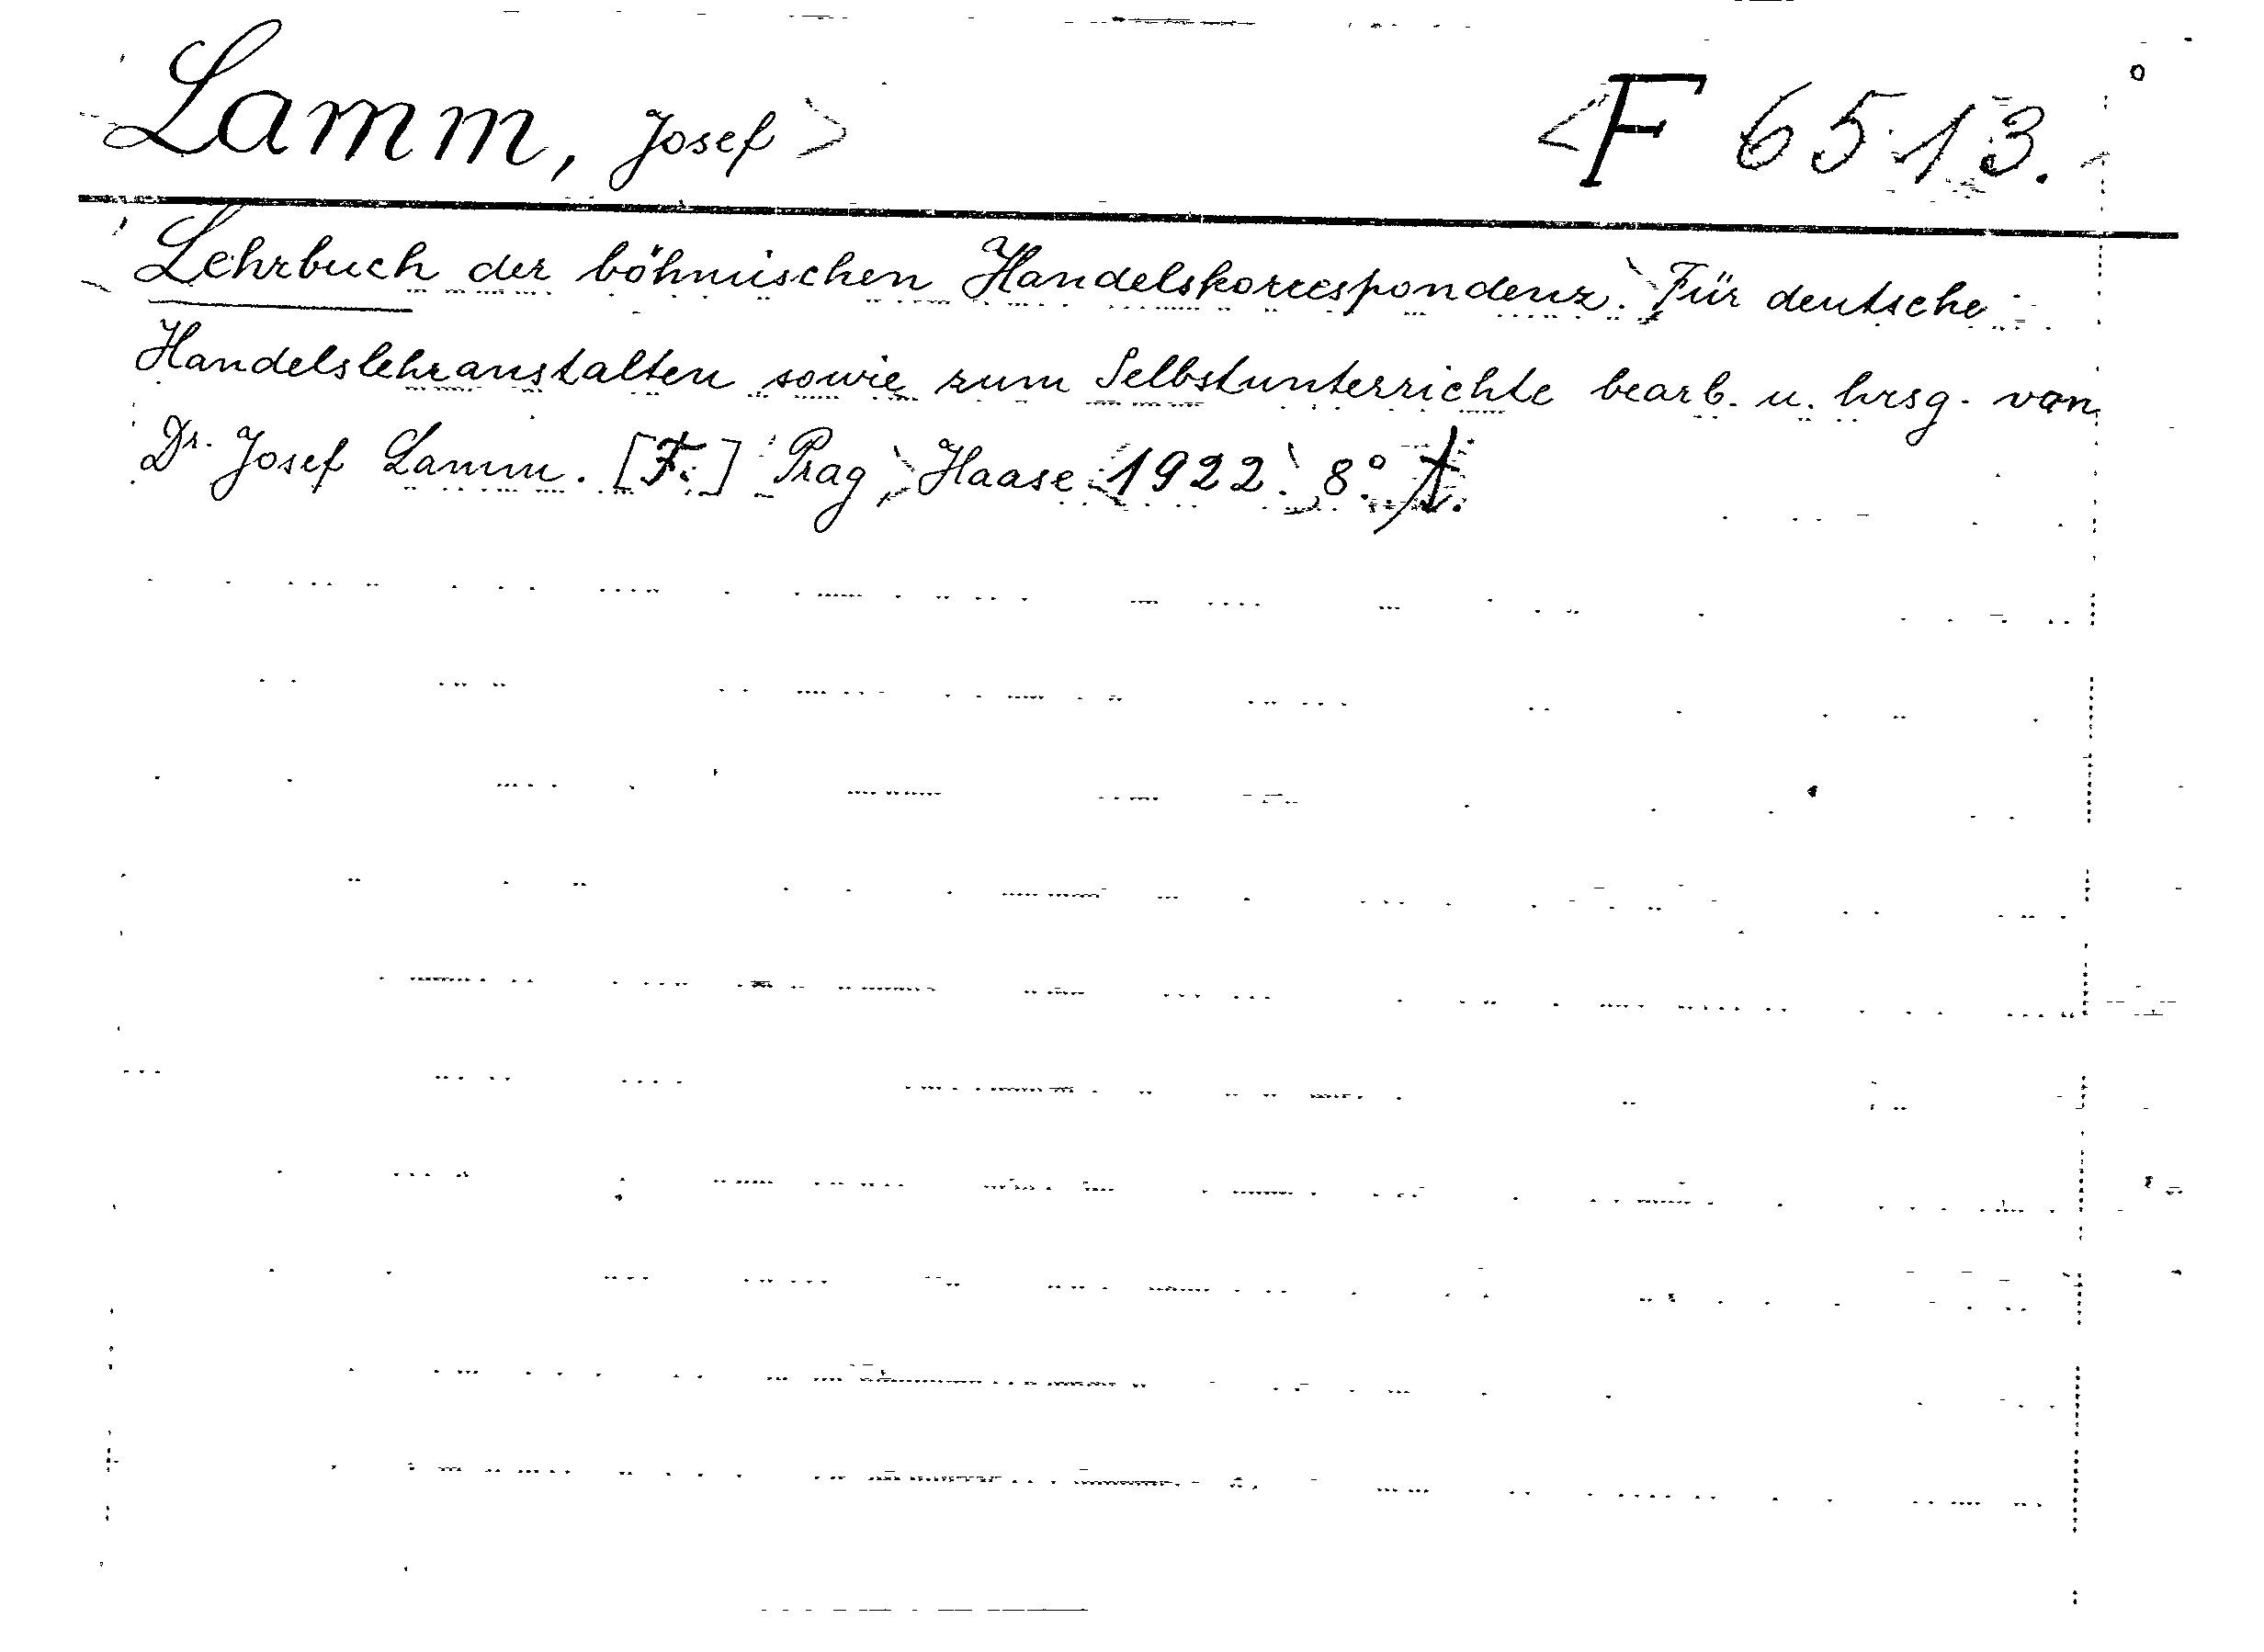 Lamm, Josef> <F 6513.
Lehrbuch der böhmischen Handelskorrespondenz. Für deutsche
Handelslehranstalten sowie zum Selbstunterrichte bearb. u. hrsg. von
Dr. Josef Lamm. [F.] Prag, Haase 1922. 8°.